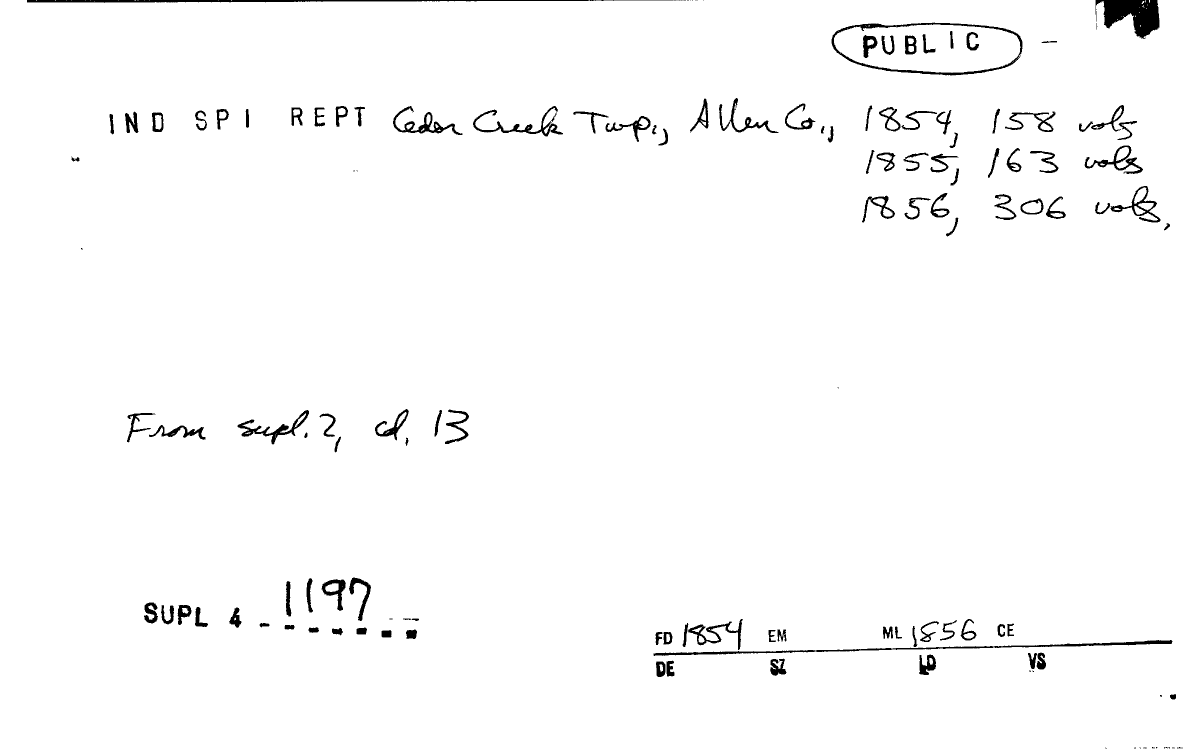 PUBLIC –
IND SPI REPT Cedar Creek Twp., Allen Co., 1854, 158 vols
1855, 163 vols
1856, 306 vols.
From supl. 2, cd. 13
SUPL 4 - 1197
FD 1854 EM ML 1856 CE
DE SZ LD VS